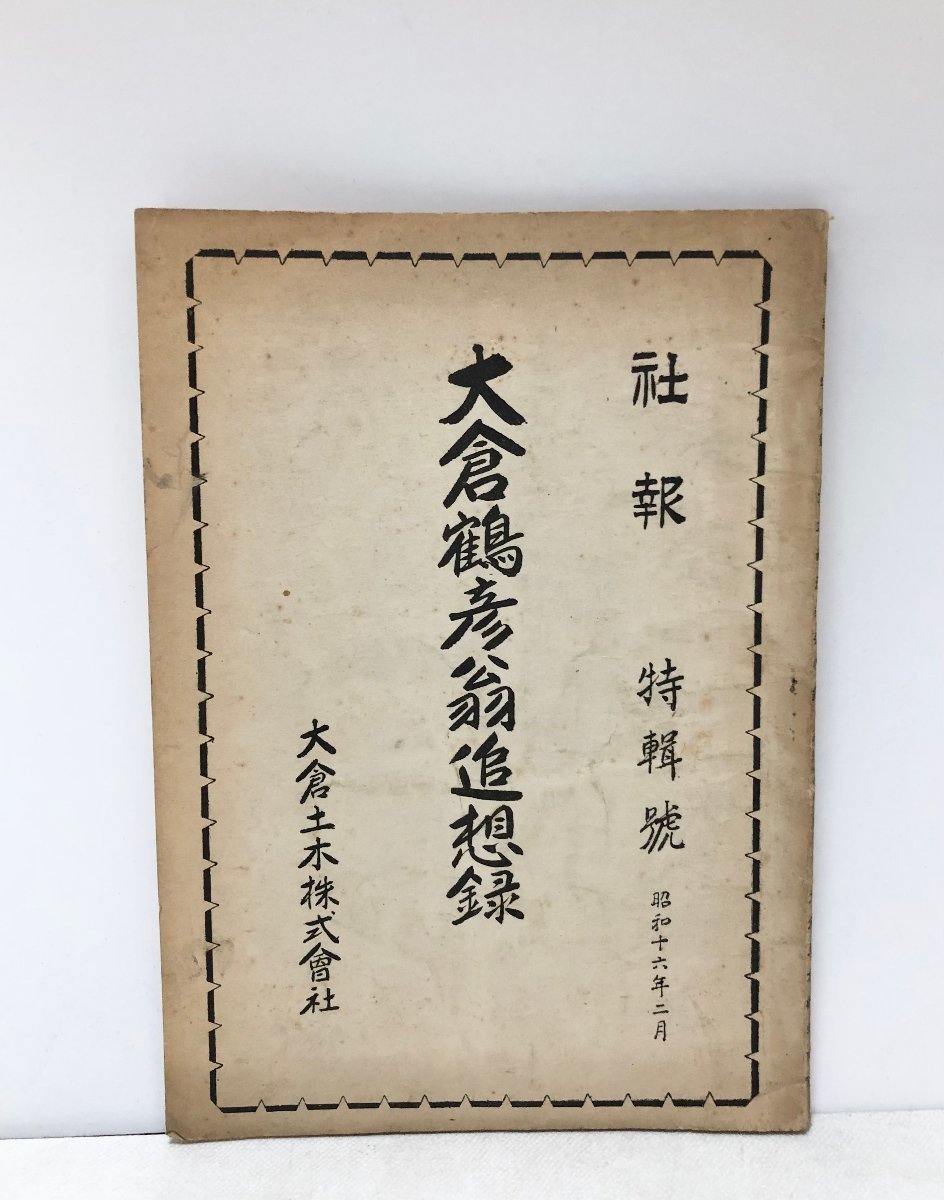 社報 特輯號 昭和十六年二月
大倉鶴彦翁追想録
大倉土木株式會社